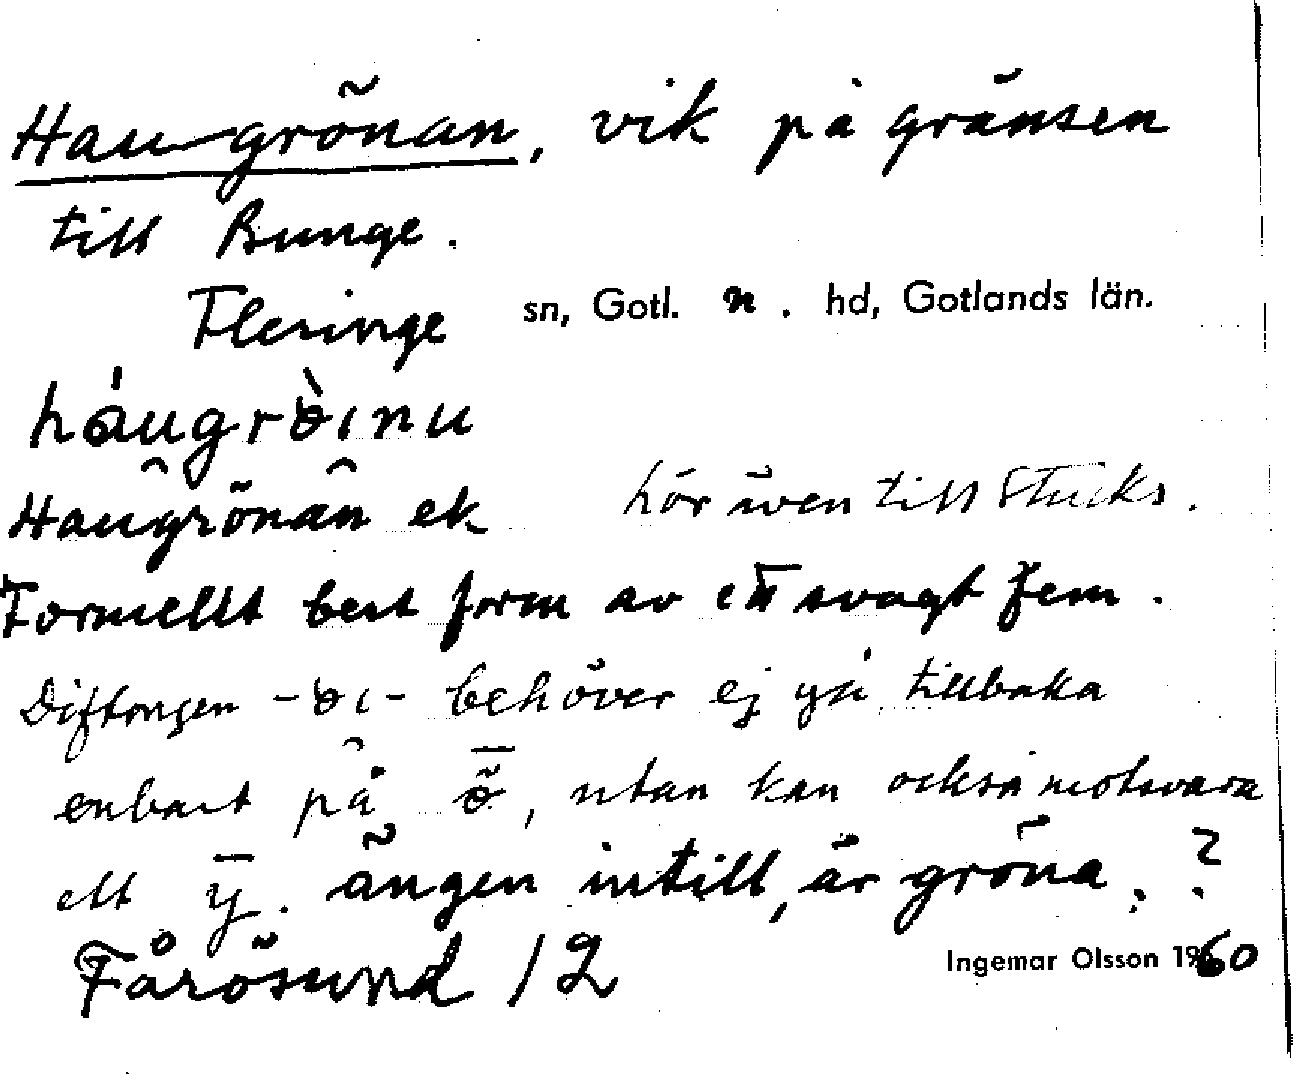 Haugrönan, vik på gränsen
till Bunge.
Fleringe sn, Gotl. n. hd, Gotlands län.
háugròinu
Haugrönan ek hör även till Stucks.
Formellt best form av ett svagt fem.
Diftongen -òı- behöver ej gå tillbaka
enbart på ȫ, utan kan också motsvara
ett ȳ. ängen intill, är gröna. ?
Fårösund 12
Ingemar Olsson 1960